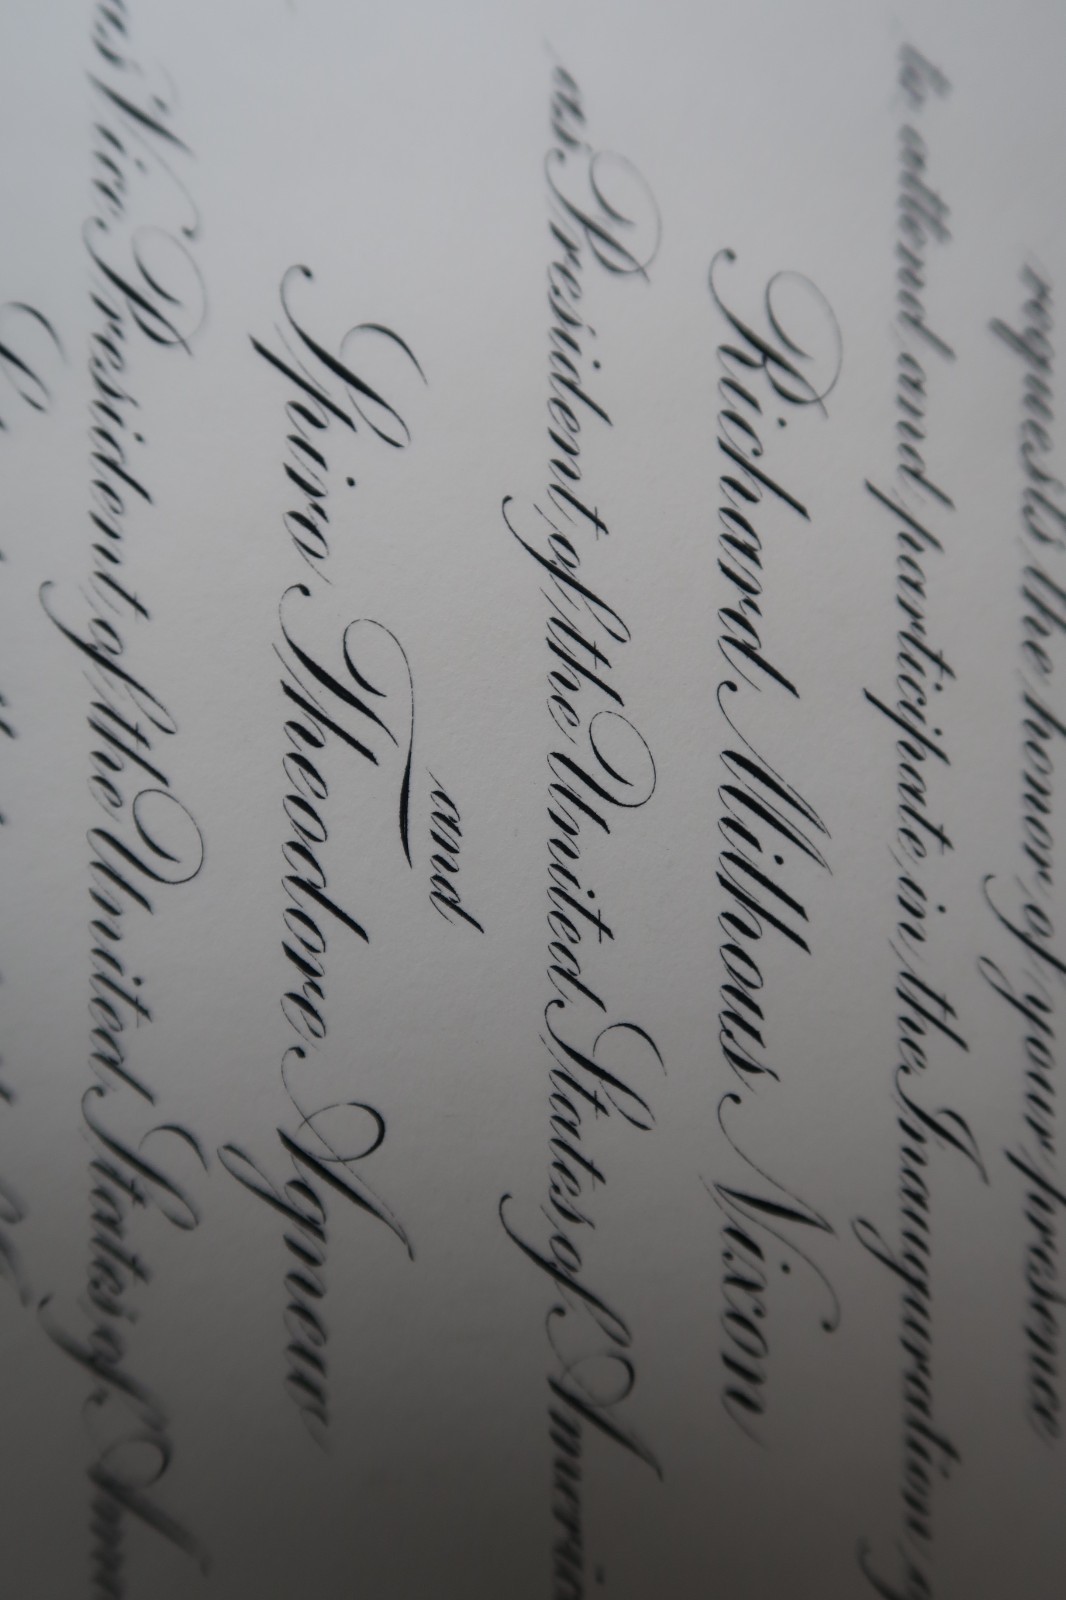 requests the honor of your presence
to attend and participate in the Inauguration
Richard Milhous Nixon
as President of the United States of America
and
Spiro Theodore Agnew
as Vice President of the United States of